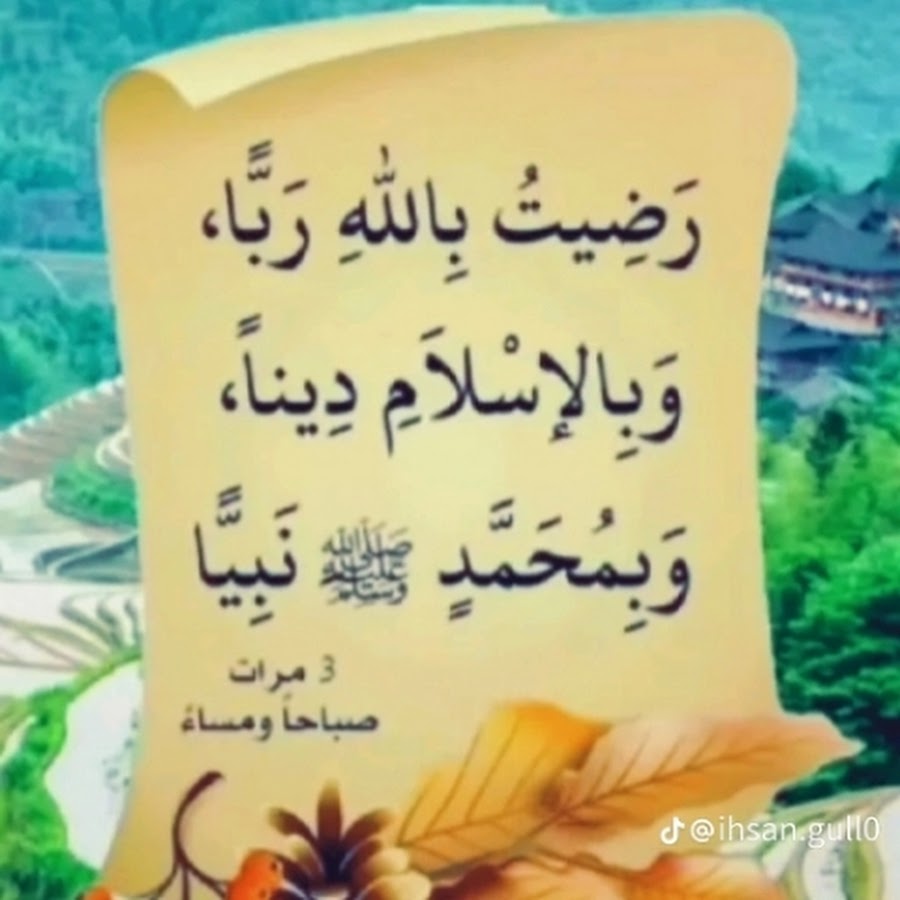 رَضِيتُ بِاللهِ رَبًّا،
وَبِالإِسْلَامِ دِيناً،
وَبِمُحَمَّدٍ ﷺ نَبِيًّا
3 مرات
صباحاً ومساءً
@ihsan.gull0